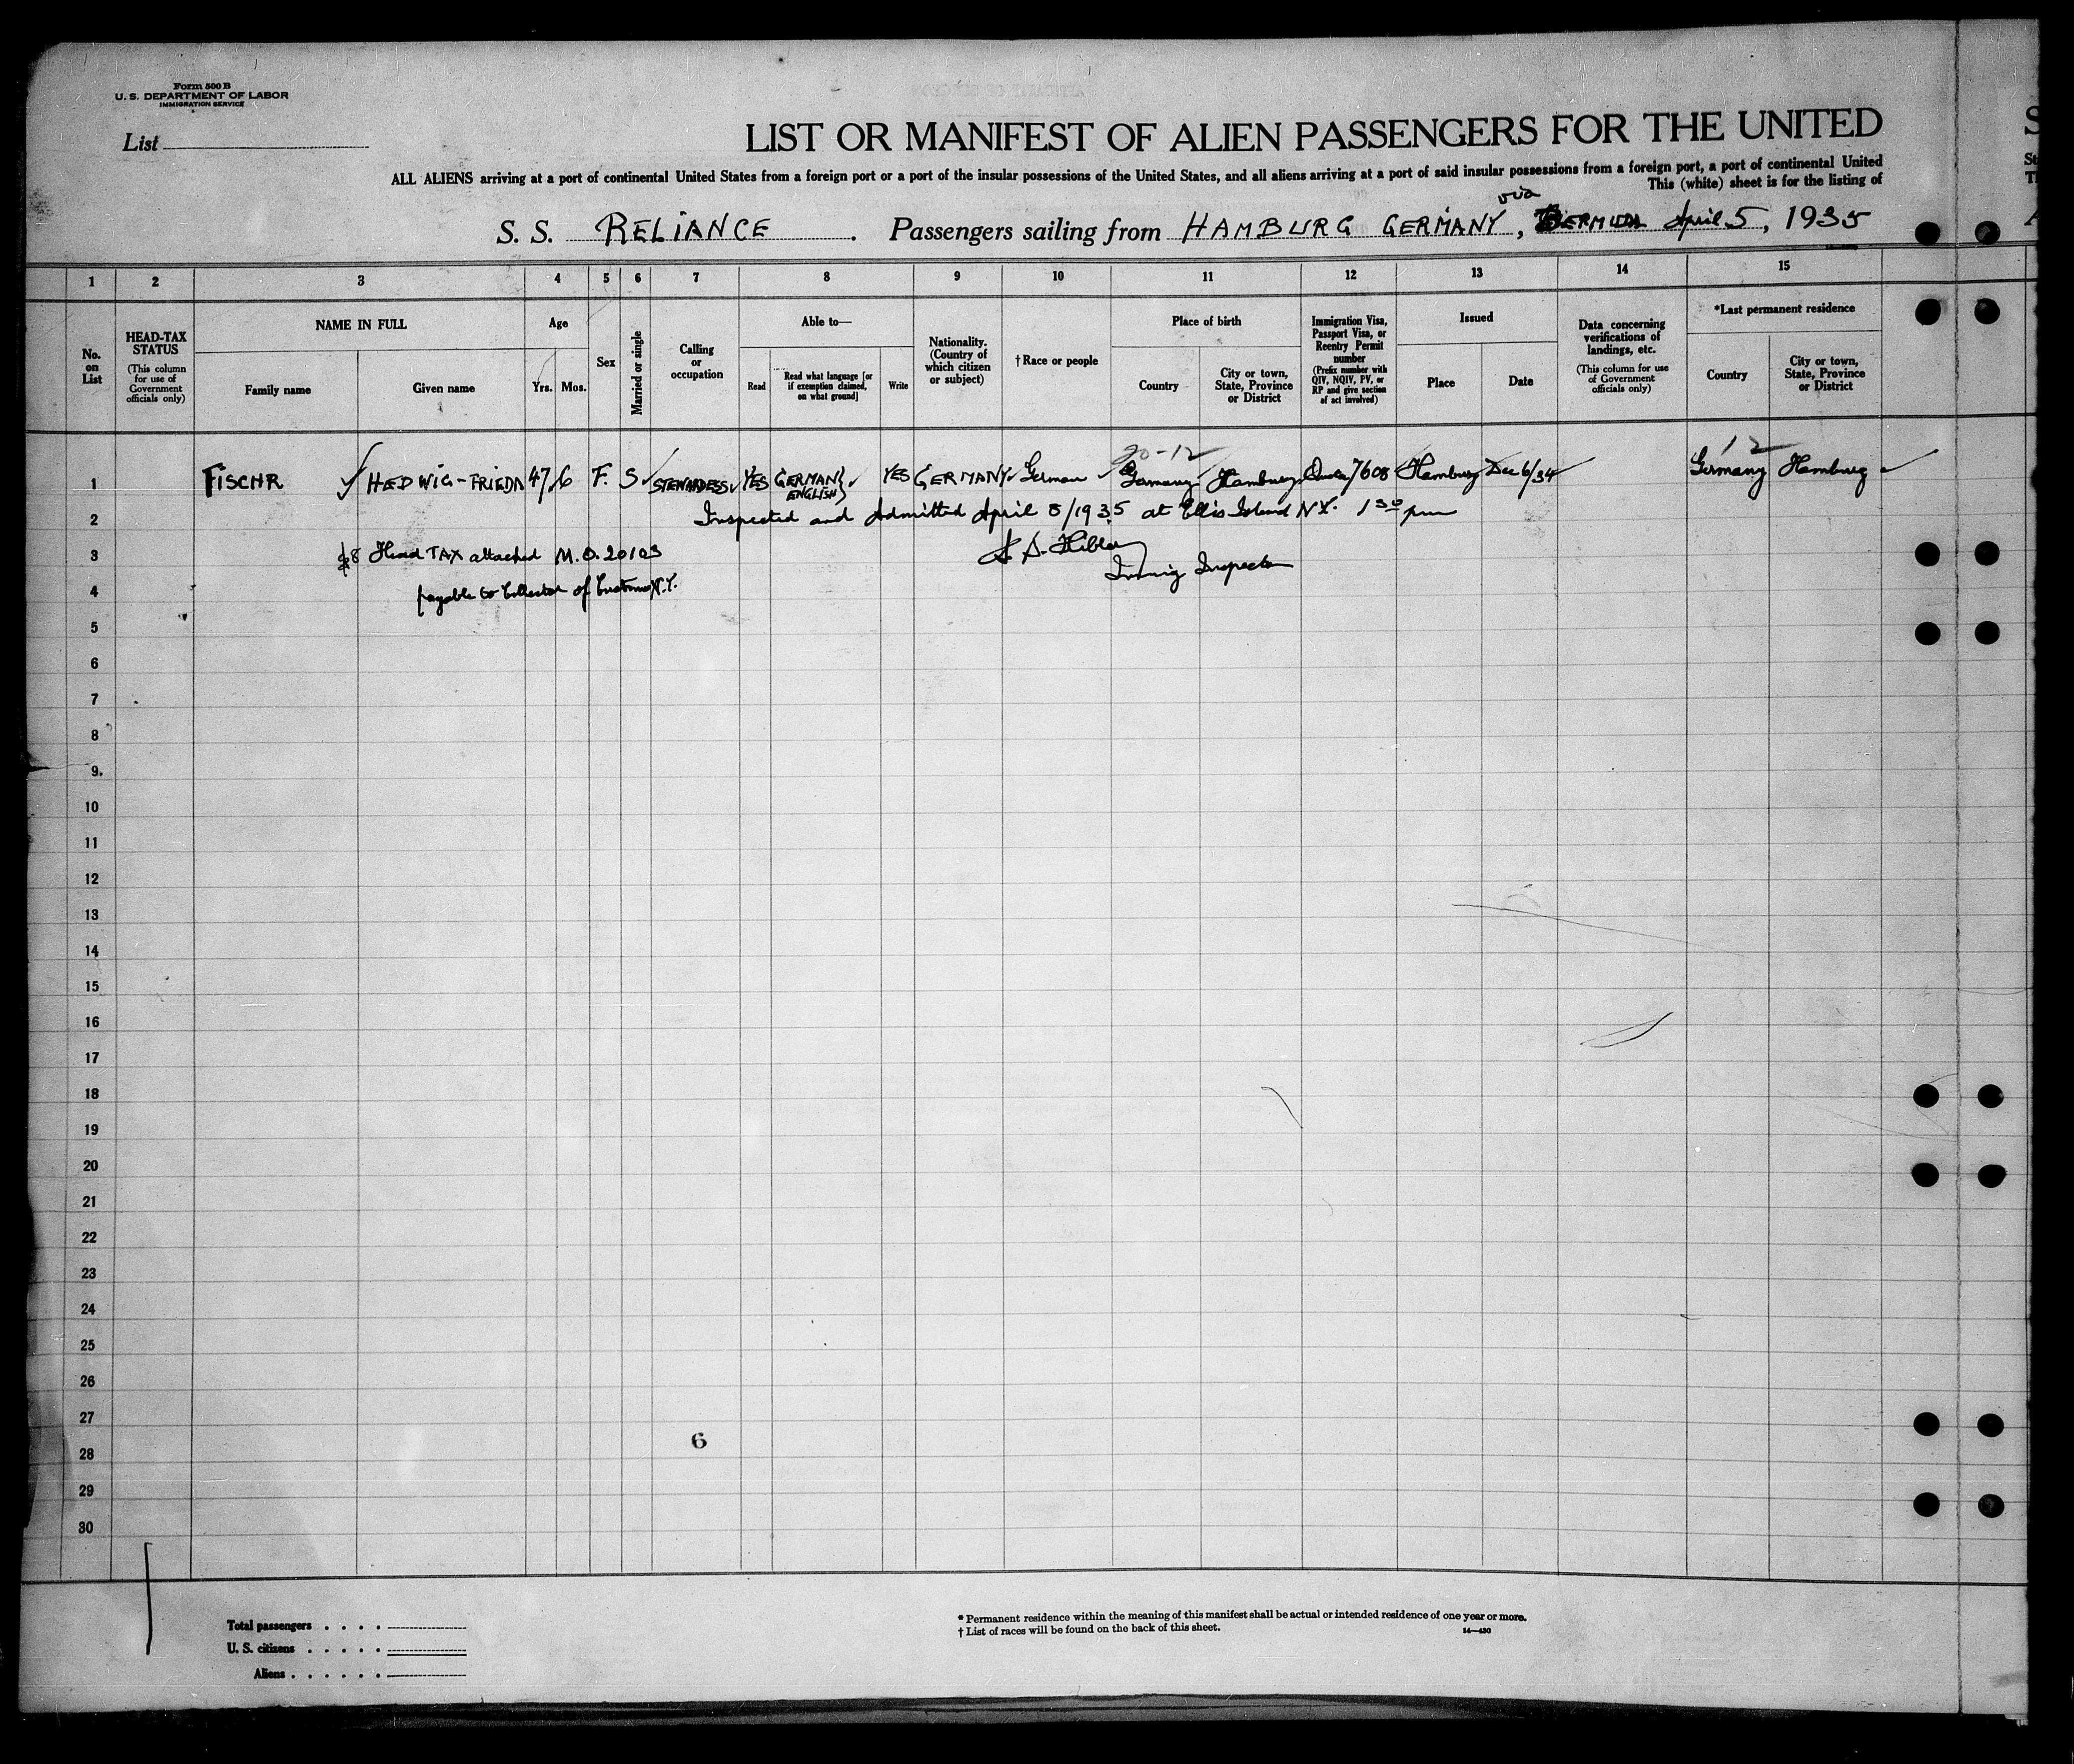 Form 500 B
U. S. DEPARTMENT OF LABOR
IMMIGRATION SERVICE
List
LIST OR MANIFEST OF ALIEN PASSENGERS FOR THE UNITED
ALL ALIENS arriving at a port of continental United States from a foreign port or a port of the insular possessions of the United States, and all aliens arriving at a port of said insular possessions from a foreign port, a port of continental United
This (white) sheet is for the listing of
via
S. S. RELIANCE . Passengers sailing from HAMBURG GERMANY, BERMUDA April 5, 1935
1 2 3 4 5 6 7 8 9 10 11 12 13 14 15
No. on List
HEAD-TAX STATUS
(This column for use of Government officials only)
NAME IN FULL
Family name
Given name
Age
Yrs. Mos.
Sex
Married or single
Calling or occupation
Able to—
Read
Read what language [or if exemption claimed, on what ground]
Write
Nationality. (Country of which citizen or subject)
† Race or people
Place of birth
Country
City or town, State, Province or District
Immigration Visa, Passport Visa, or Reentry Permit number
(Prefix number with QIV, NQIV, PV, or RP and give section of act involved)
Issued
Place
Date
Data concerning verifications of landings, etc.
(This column for use of Government officials only)
*Last permanent residence
Country
City or town, State, Province or District
20-12
12
1 FISCHR HEDWIG-FRIEDA 47 6 F. S STEWARDESS YES GERMAN ENGLISH YES GERMANY German Germany Hamburg Quota 7608 Hamburg Dec 6/34 Germany Hamburg
2 Inspected and Admitted April 8/1935 at Ellis Island N.Y. 1 30 pm
3 $8 Head TAX attached M.O. 20103
Immig Inspector
4 payable to Collector of Customs N.Y.
5
6
7
8
9.
10
11
12
13
14
15
16
17
18
19
20
21
22
23
24
25
26
27
6
28
29
30
Total passengers . . . .
U. S. citizens . . . . .
Aliens . . . . . .
* Permanent residence within the meaning of this manifest shall be actual or intended residence of one year or more.
† List of races will be found on the back of this sheet.
14—430